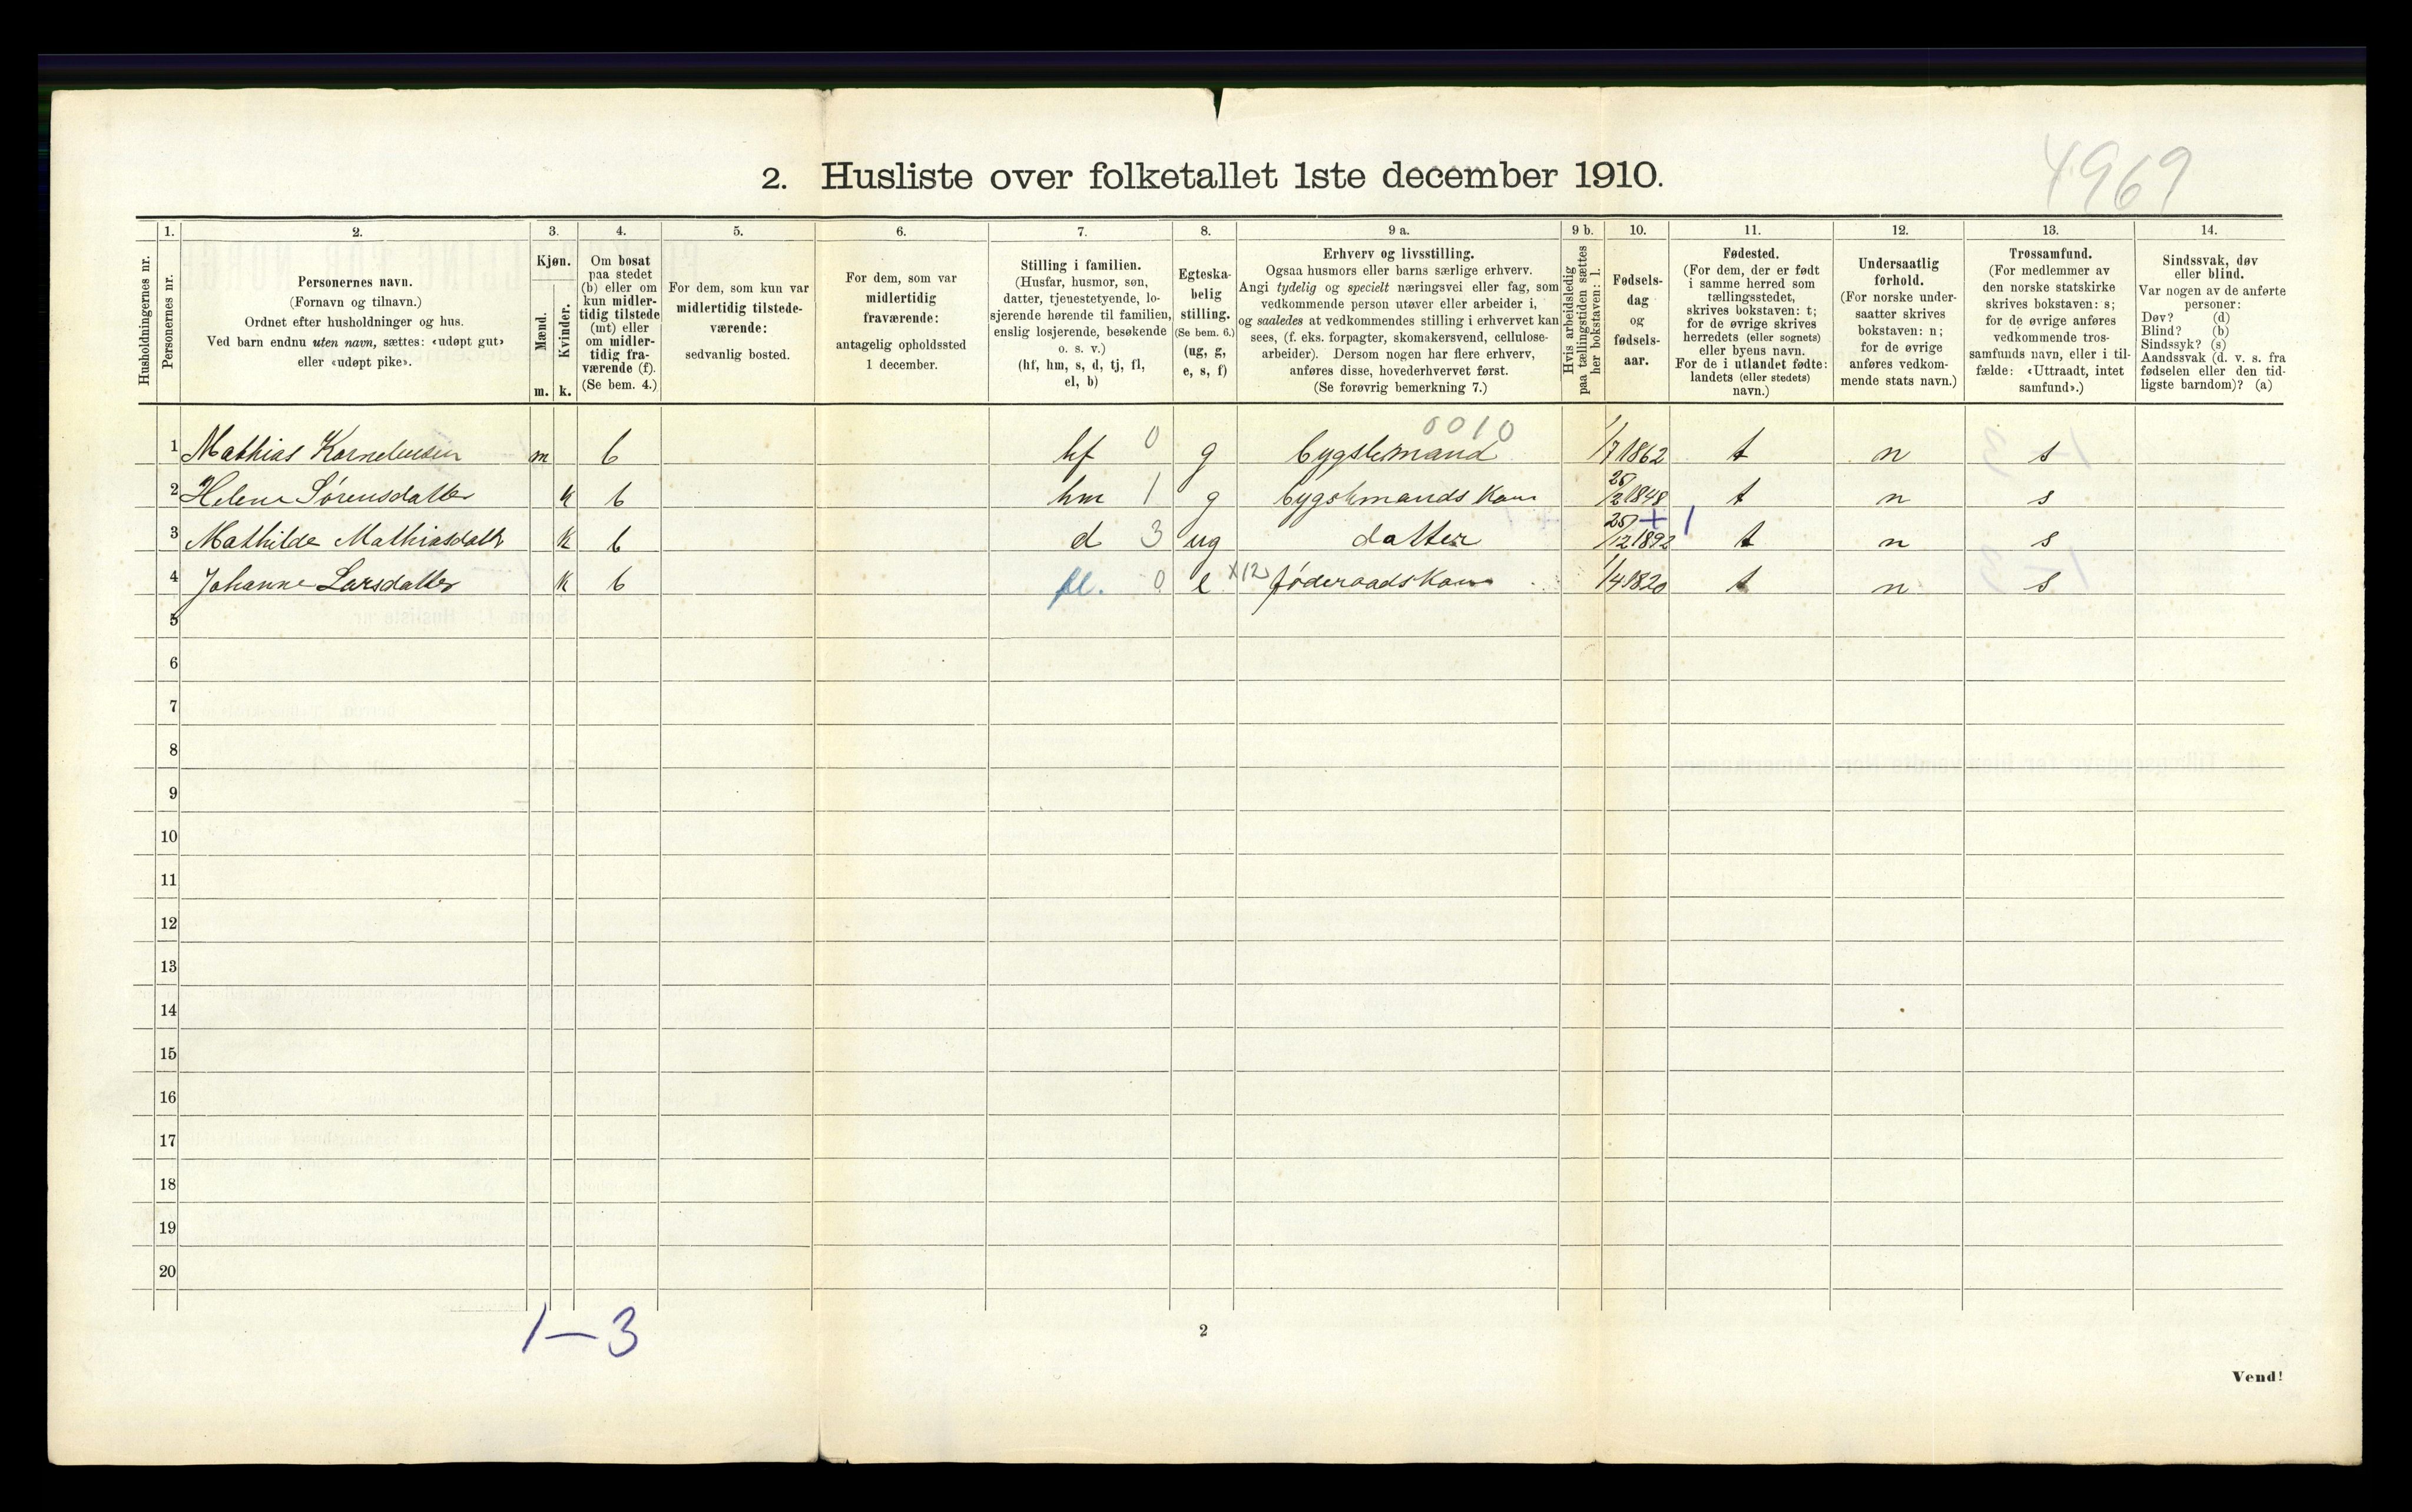 4969
2. Husliste over folketallet 1ste december 1910.
Husholdningernes nr.
1.
Personernes nr.
2.
Personernes navn.
(Fornavn og tilnavn.)
Ordnet efter husholdninger og hus.
Ved barn endnu uten navn, sættes: «udøpt gut»
eller «udøpt pike».
3.
Kjøn.
Mænd.
Kvinder.
m. k.
4.
Om bosat
paa stedet
(b) eller om
kun midler-
tidig tilstede
(mt) eller
om midler-
tidig fra-
værende (f).
(Se bem. 4.)
5.
For dem, som kun var
midlertidig tilstede-
værende:
sedvanlig bosted.
6.
For dem, som var
midlertidig
fraværende:
antagelig opholdssted
1 december.
7.
Stilling i familien.
(Husfar, husmor, søn,
datter, tjenestetyende, lo-
sjerende hørende til familien,
enslig losjerende, besøkende
o. s. v.)
(hf, hm, s, d, tj, fl,
el, b)
8.
Egteska-
belig
stilling.
(Se bem. 6.)
(ug, g,
e, s, f)
9 a.
Erhverv og livsstilling.
Ogsaa husmors eller barns særlige erhverv.
Angi tydelig og specielt næringsvei eller fag, som
vedkommende person utøver eller arbeider i,
og saaledes at vedkommendes stilling i erhvervet kan
sees, (f. eks. forpagter, skomakersvend, cellulose-
arbeider). Dersom nogen har flere erhverv,
anføres disse, hovederhvervet først.
(Se forøvrig bemerkning 7.)
9 b.
Hvis arbeidsledig
paa tællingstiden sættes
her bokstaven: l.
10.
Fødsels-
dag
og
fødsels-
aar.
11.
Fødested.
(For dem, der er født
i samme herred som
tællingsstedet,
skrives bokstaven: t;
for de øvrige skrives
herredets (eller sognets)
eller byens navn.
For de i utlandet fødte:
landets (eller stedets)
navn.)
12.
Undersaatlig
forhold.
(For norske under-
saatter skrives
bokstaven: n;
for de øvrige
anføres vedkom-
mende stats navn.)
13.
Trossamfund.
(For medlemmer av
den norske statskirke
skrives bokstaven: s;
for de øvrige anføres
vedkommende tros-
samfunds navn, eller i til-
fælde: «Uttraadt, intet
samfund».)
14.
Sindssvak, døv
eller blind.
Var nogen av de anførte
personer:
Døv? (d)
Blind? (b)
Sindssyk? (s)
Aandssvak (d. v. s. fra
fødselen eller den tid-
ligste barndom)? (a)
0010
1 Mathias Korneliusen m b hf 0 g bygslemand 1/7 1862 t n s
2 Helene Sørensdatter k b hm 1 g bygslemands Kone 28/2 1848 t n s
+ 1
3 Mathilde Mathiasdatt k b d 3 ug datter 25/12 1892 t n s
4 Johanne Larsdatter k b fl. 0 e X12 føderaads Kone 1/4 1820 t n s
5
6
7
8
9
10
11
12
13
14
15
16
17
18
19
20
1-3
2
Vend!